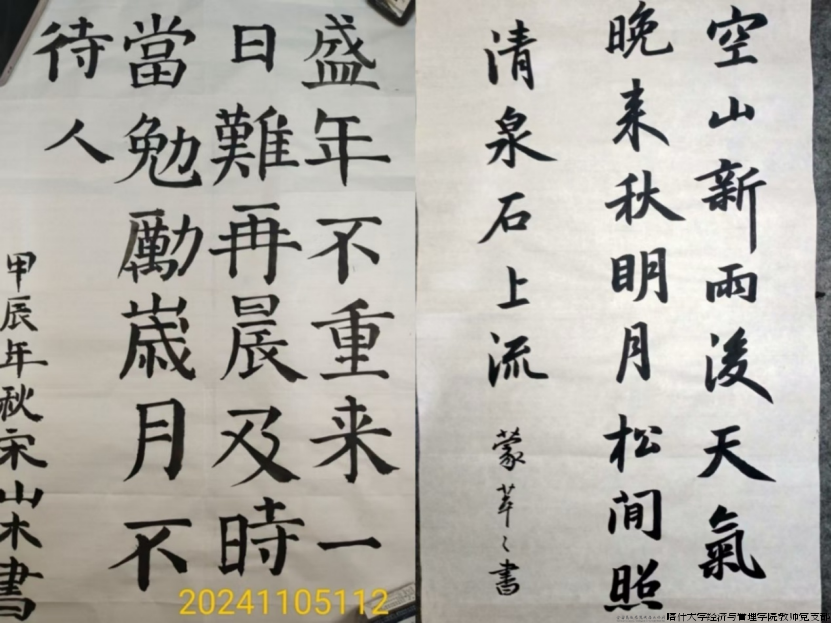 盛年不重来一
日難再晨及時
當勉勵歳月不
待人
甲辰年秋宋山木書
20241105112
空山新雨後天氣
晚来秋明月松间照
清泉石上流
蒙 書
喀什大学经济与管理学院教师党支部